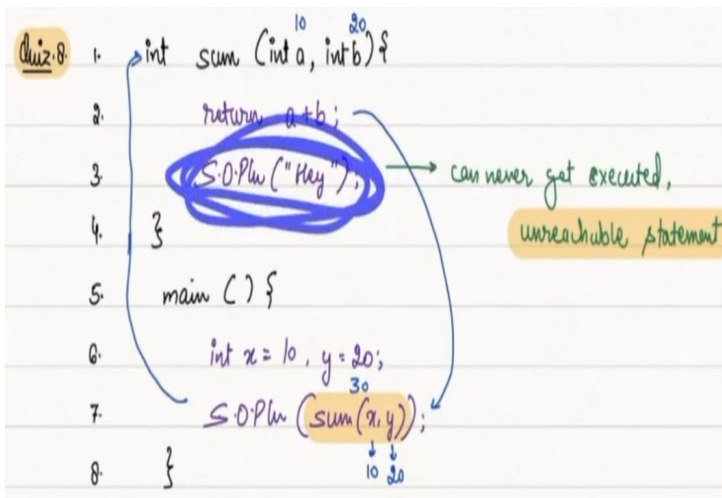 10 20
Quiz.8. 1. int sum (int a, int b) {
2. return a+b;
3. S.O.Pln ("Hey"); → can never get executed,
4. } unreachable statement
5. main () {
6. int x = 10, y = 20;
30
7. S.O.Pln (sum(x, y));
8. } 10 20